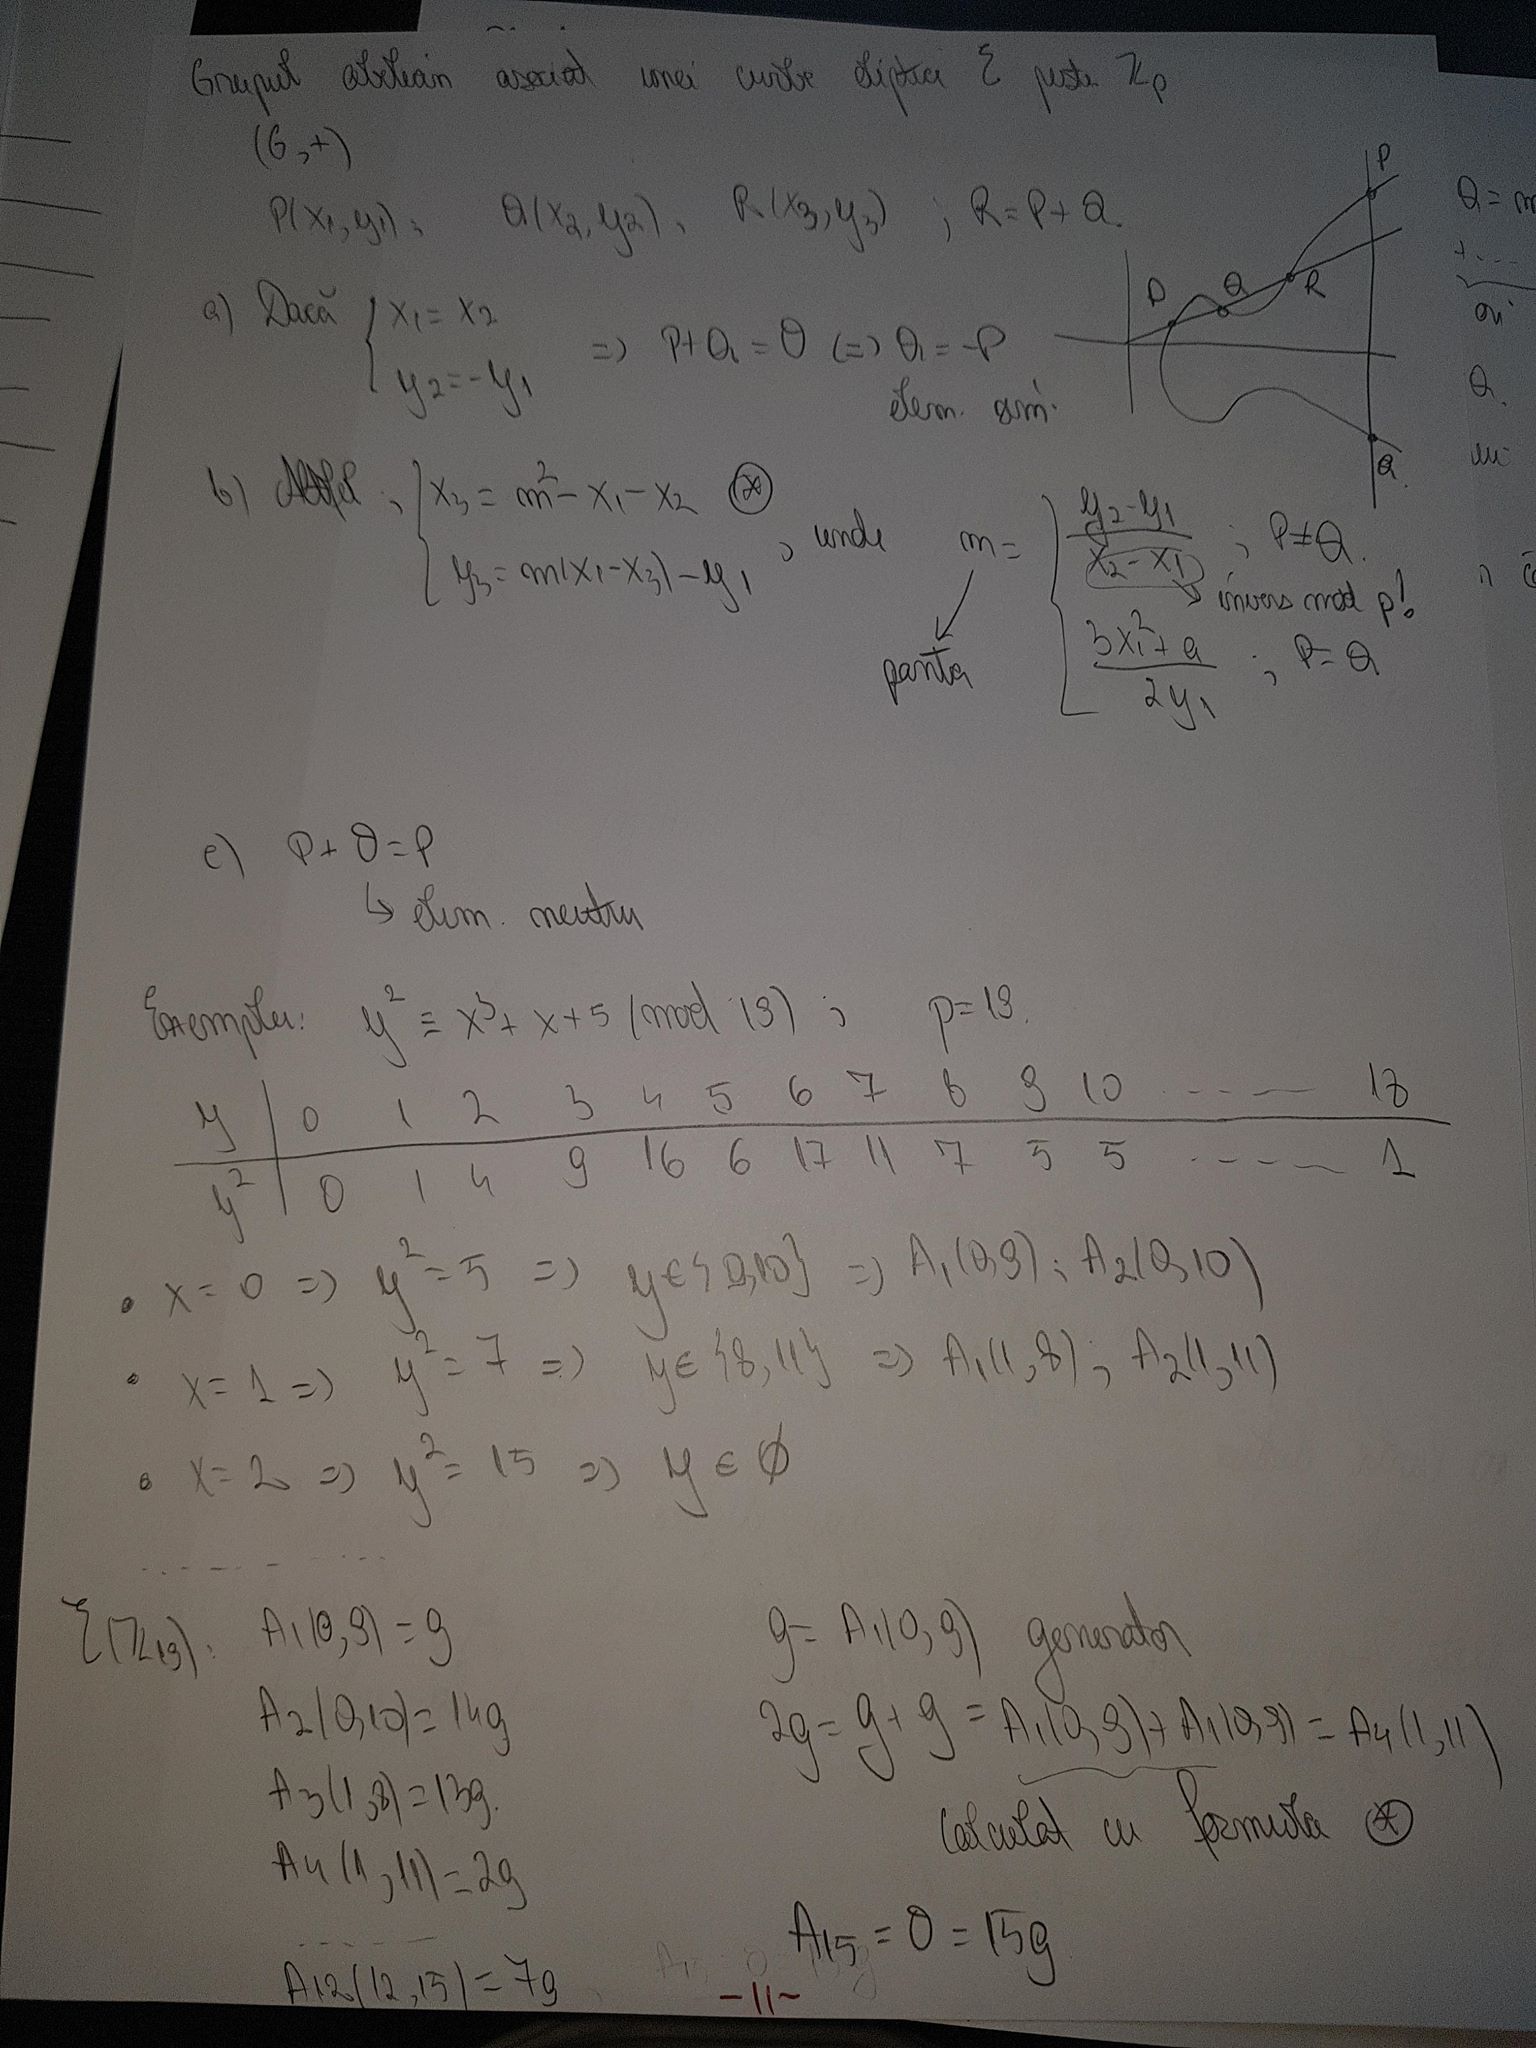 Grupul abelian asociat unei curbe eliptice E peste Zp
(G,+)
P(x1,y1), Q(x2,y2), R(x3,y3) ; R=P+Q.
a) Dacă { x1=x2
y2=-y1 => P+Q=O (=) Q=-P
elem. sim.
P
D Q R
Q.
b) Altfel, { x3=m²-x1-x2 (*)
y3=m(x1-x3)-y1 , unde m= { (y2-y1)/(x2-x1) ; P≠Q.
invers mod p!
(3x1²+a)/(2y1) ; P=Q
panta
Q=m
+....
ori
Q.
c) P+O=P
↳ elem. neutru
Exemplu: y² ≡ x³+x+5 (mod 19) ; p=19.
y | 0 1 2 3 4 5 6 7 8 9 10 ..... 18
y² | 0 1 4 9 16 6 17 11 7 5 5 ..... 1
• x=0 => y²=5 => y∈{9,10} => A1(0,9); A2(0,10)
• x=1 => y²=7 => y∈{8,11} => A1(1,8); A2(1,11)
• x=2 => y²=15 => y∈∅
.........
E(Z19): A1(0,9)=g
A2(0,10)=14g
A3(1,8)=13g.
A4(1,11)=2g
.........
A12(12,15)=7g
g=A1(0,9) generator
2g=g+g=A1(0,9)+A1(0,9)=A4(1,11)
Calculat cu formula (*)
A15=O=15g
-11-